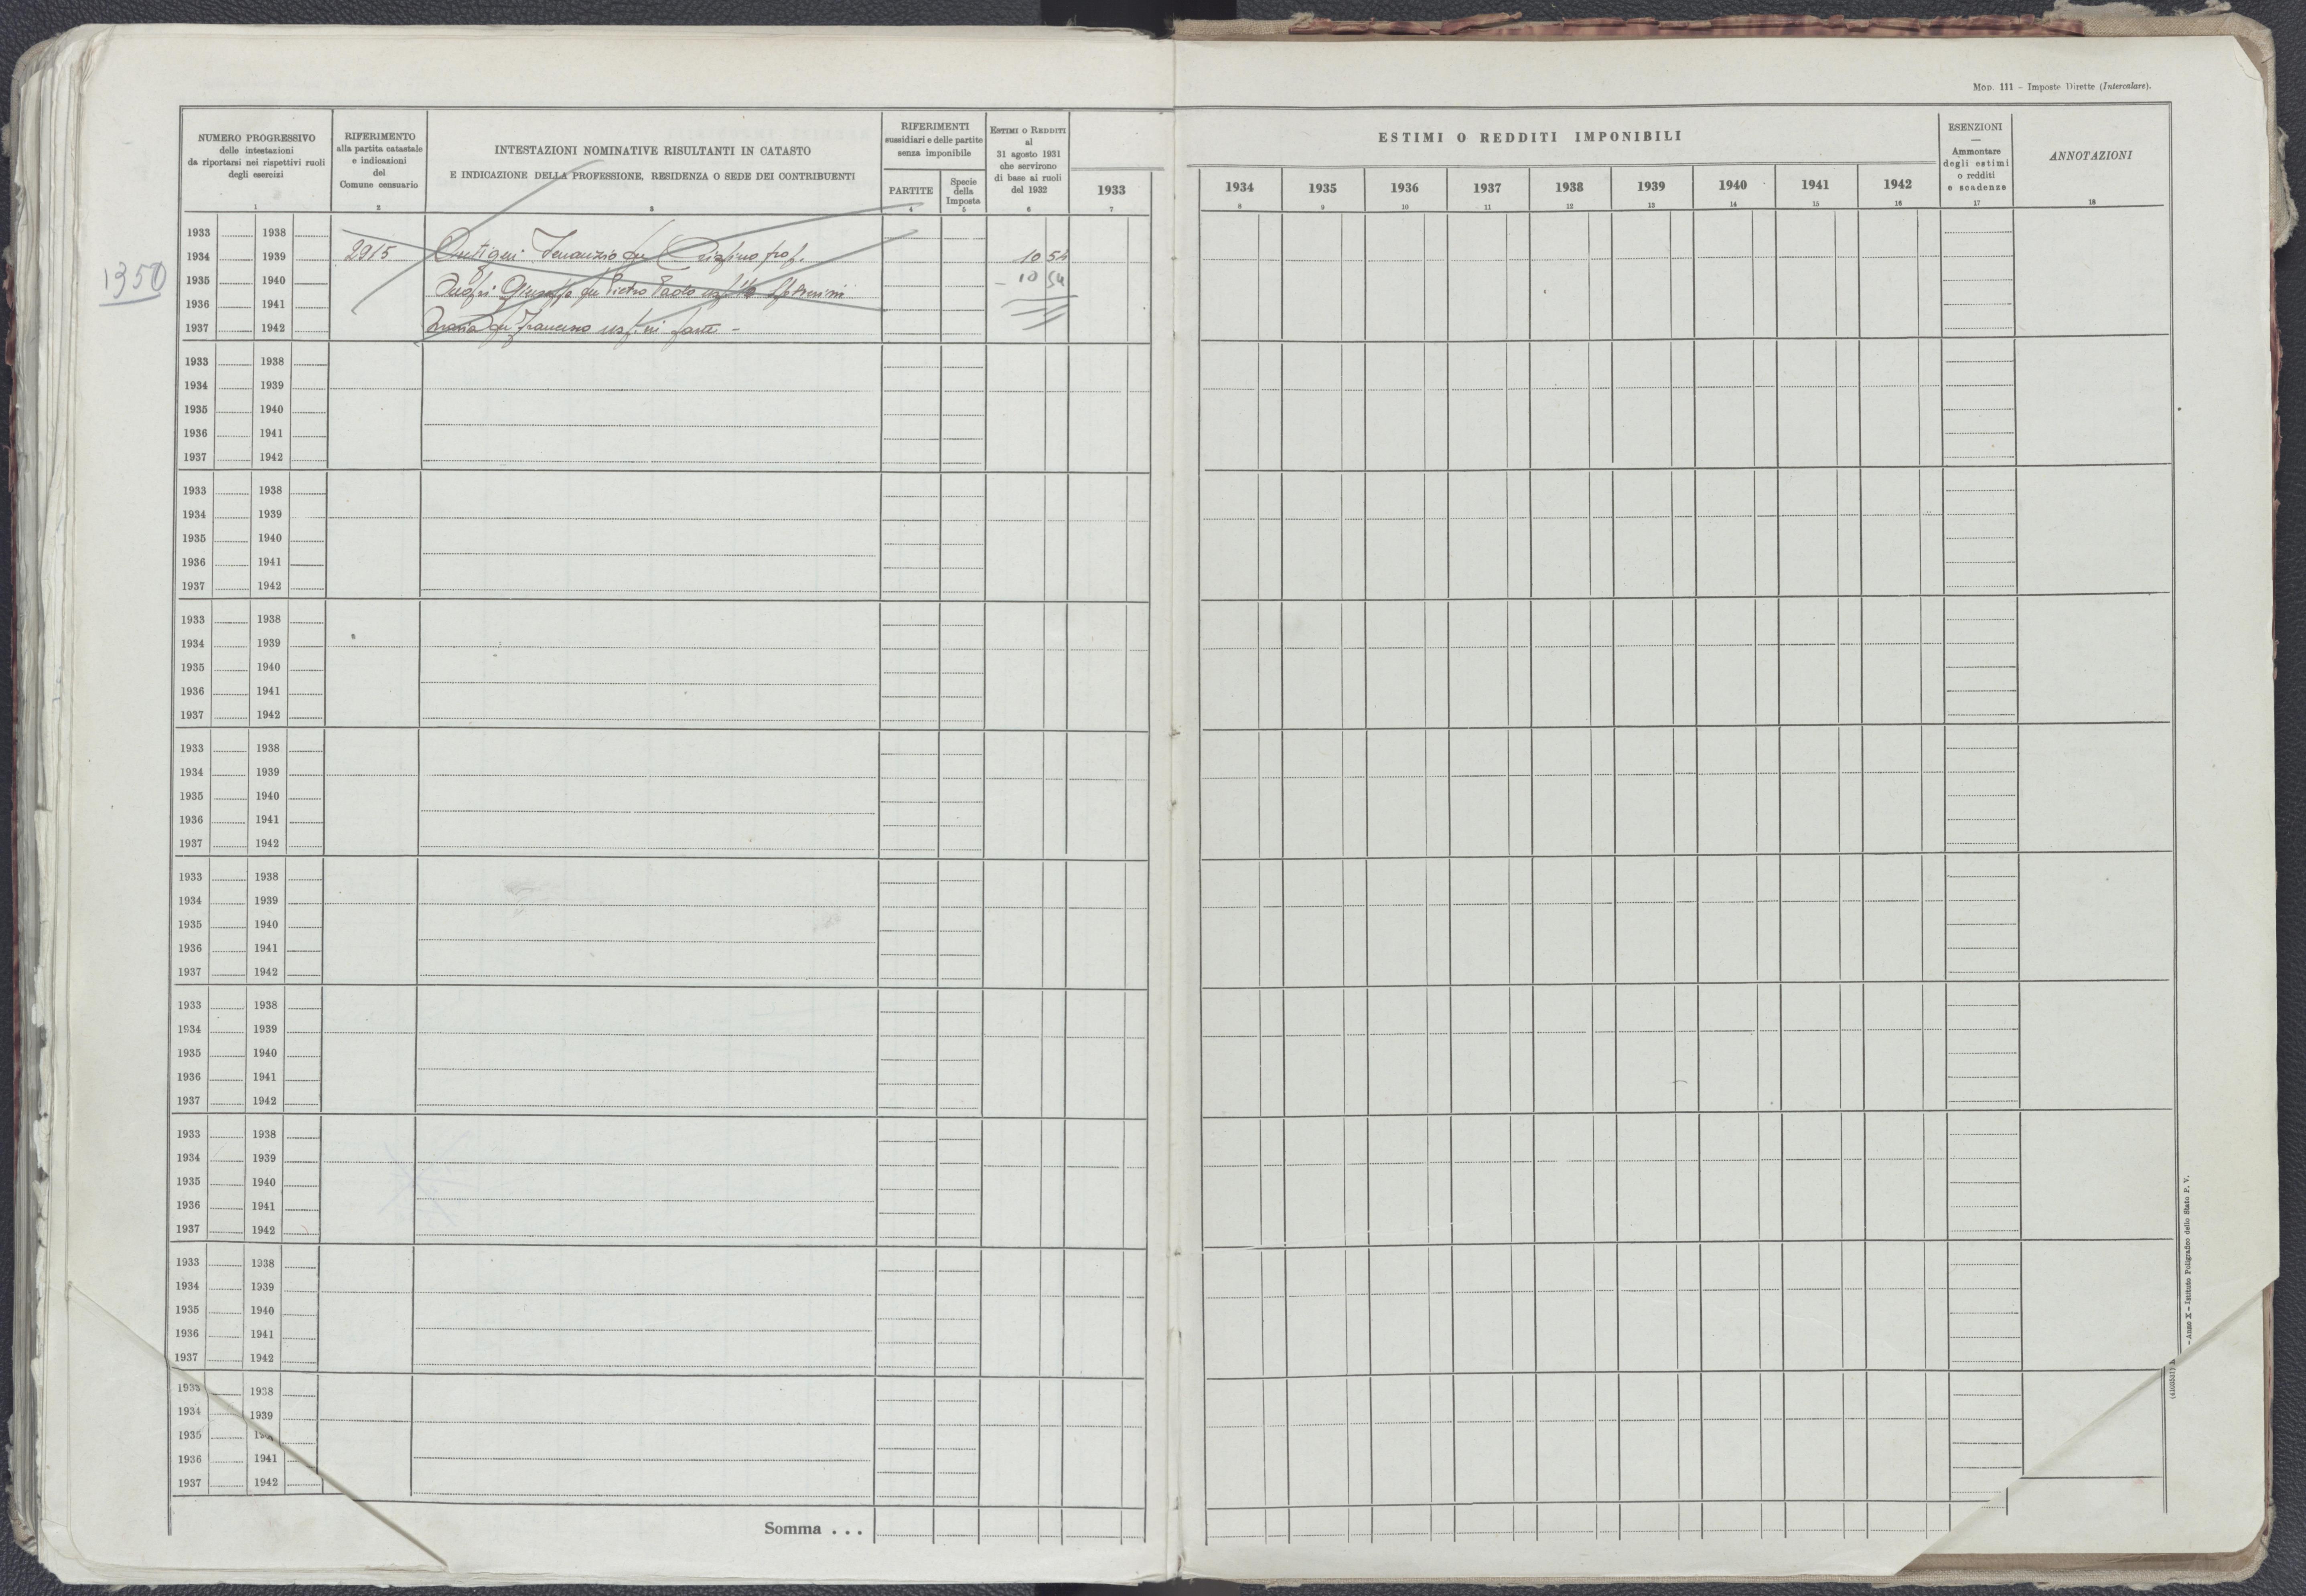 Mod. 111 - Imposte Dirette (Intercalare).
NUMERO PROGRESSIVO
delle intestazioni
da riportarsi nei rispettivi ruoli
degli esercizi
1
RIFERIMENTO
alla partita catastale
e indicazioni
del
Comune censuario
2
INTESTAZIONI NOMINATIVE RISULTANTI IN CATASTO
E INDICAZIONE DELLA PROFESSIONE, RESIDENZA O SEDE DEI CONTRIBUENTI
3
RIFERIMENTI
sussidiari e delle partite
senza imponibile
PARTITE
4
Specie
della
Imposta
5
Estimi o Redditi
al
31 agosto 1931
che servirono
di base ai ruoli
del 1932
6
1933
7
ESTIMI O REDDITI IMPONIBILI
1934 1935 1936 1937 1938 1939 1940 1941 1942
8 9 10 11 12 13 14 15 16
ESENZIONI
—
Ammontare
degli estimi
o redditi
e scadenze
17
ANNOTAZIONI
18
1350
1933 1938
1934 1939 2915 Venanzio fu prof. 10 54
1935 1940 fu Pietro Paolo - 10 54
1936 1941
1937 1942 Maria fu Francesco usf. in parte -
1933 1938
1934 1939
1935 1940
1936 1941
1937 1942
1933 1938
1934 1939
1935 1940
1936 1941
1937 1942
1933 1938
1934 1939
1935 1940
1936 1941
1937 1942
1933 1938
1934 1939
1935 1940
1936 1941
1937 1942
1933 1938
1934 1939
1935 1940
1936 1941
1937 1942
1933 1938
1934 1939
1935 1940
1936 1941
1937 1942
1933 1938
1934 1939
1935 1940
1936 1941
1937 1942
1933 1938
1934 1939
1935 1940
1936 1941
1937 1942
1933 1938
1934 1939
1935
1936 1941
1937 1942
Somma . . .
- Anno X - Istituto Poligrafico dello Stato P. V.